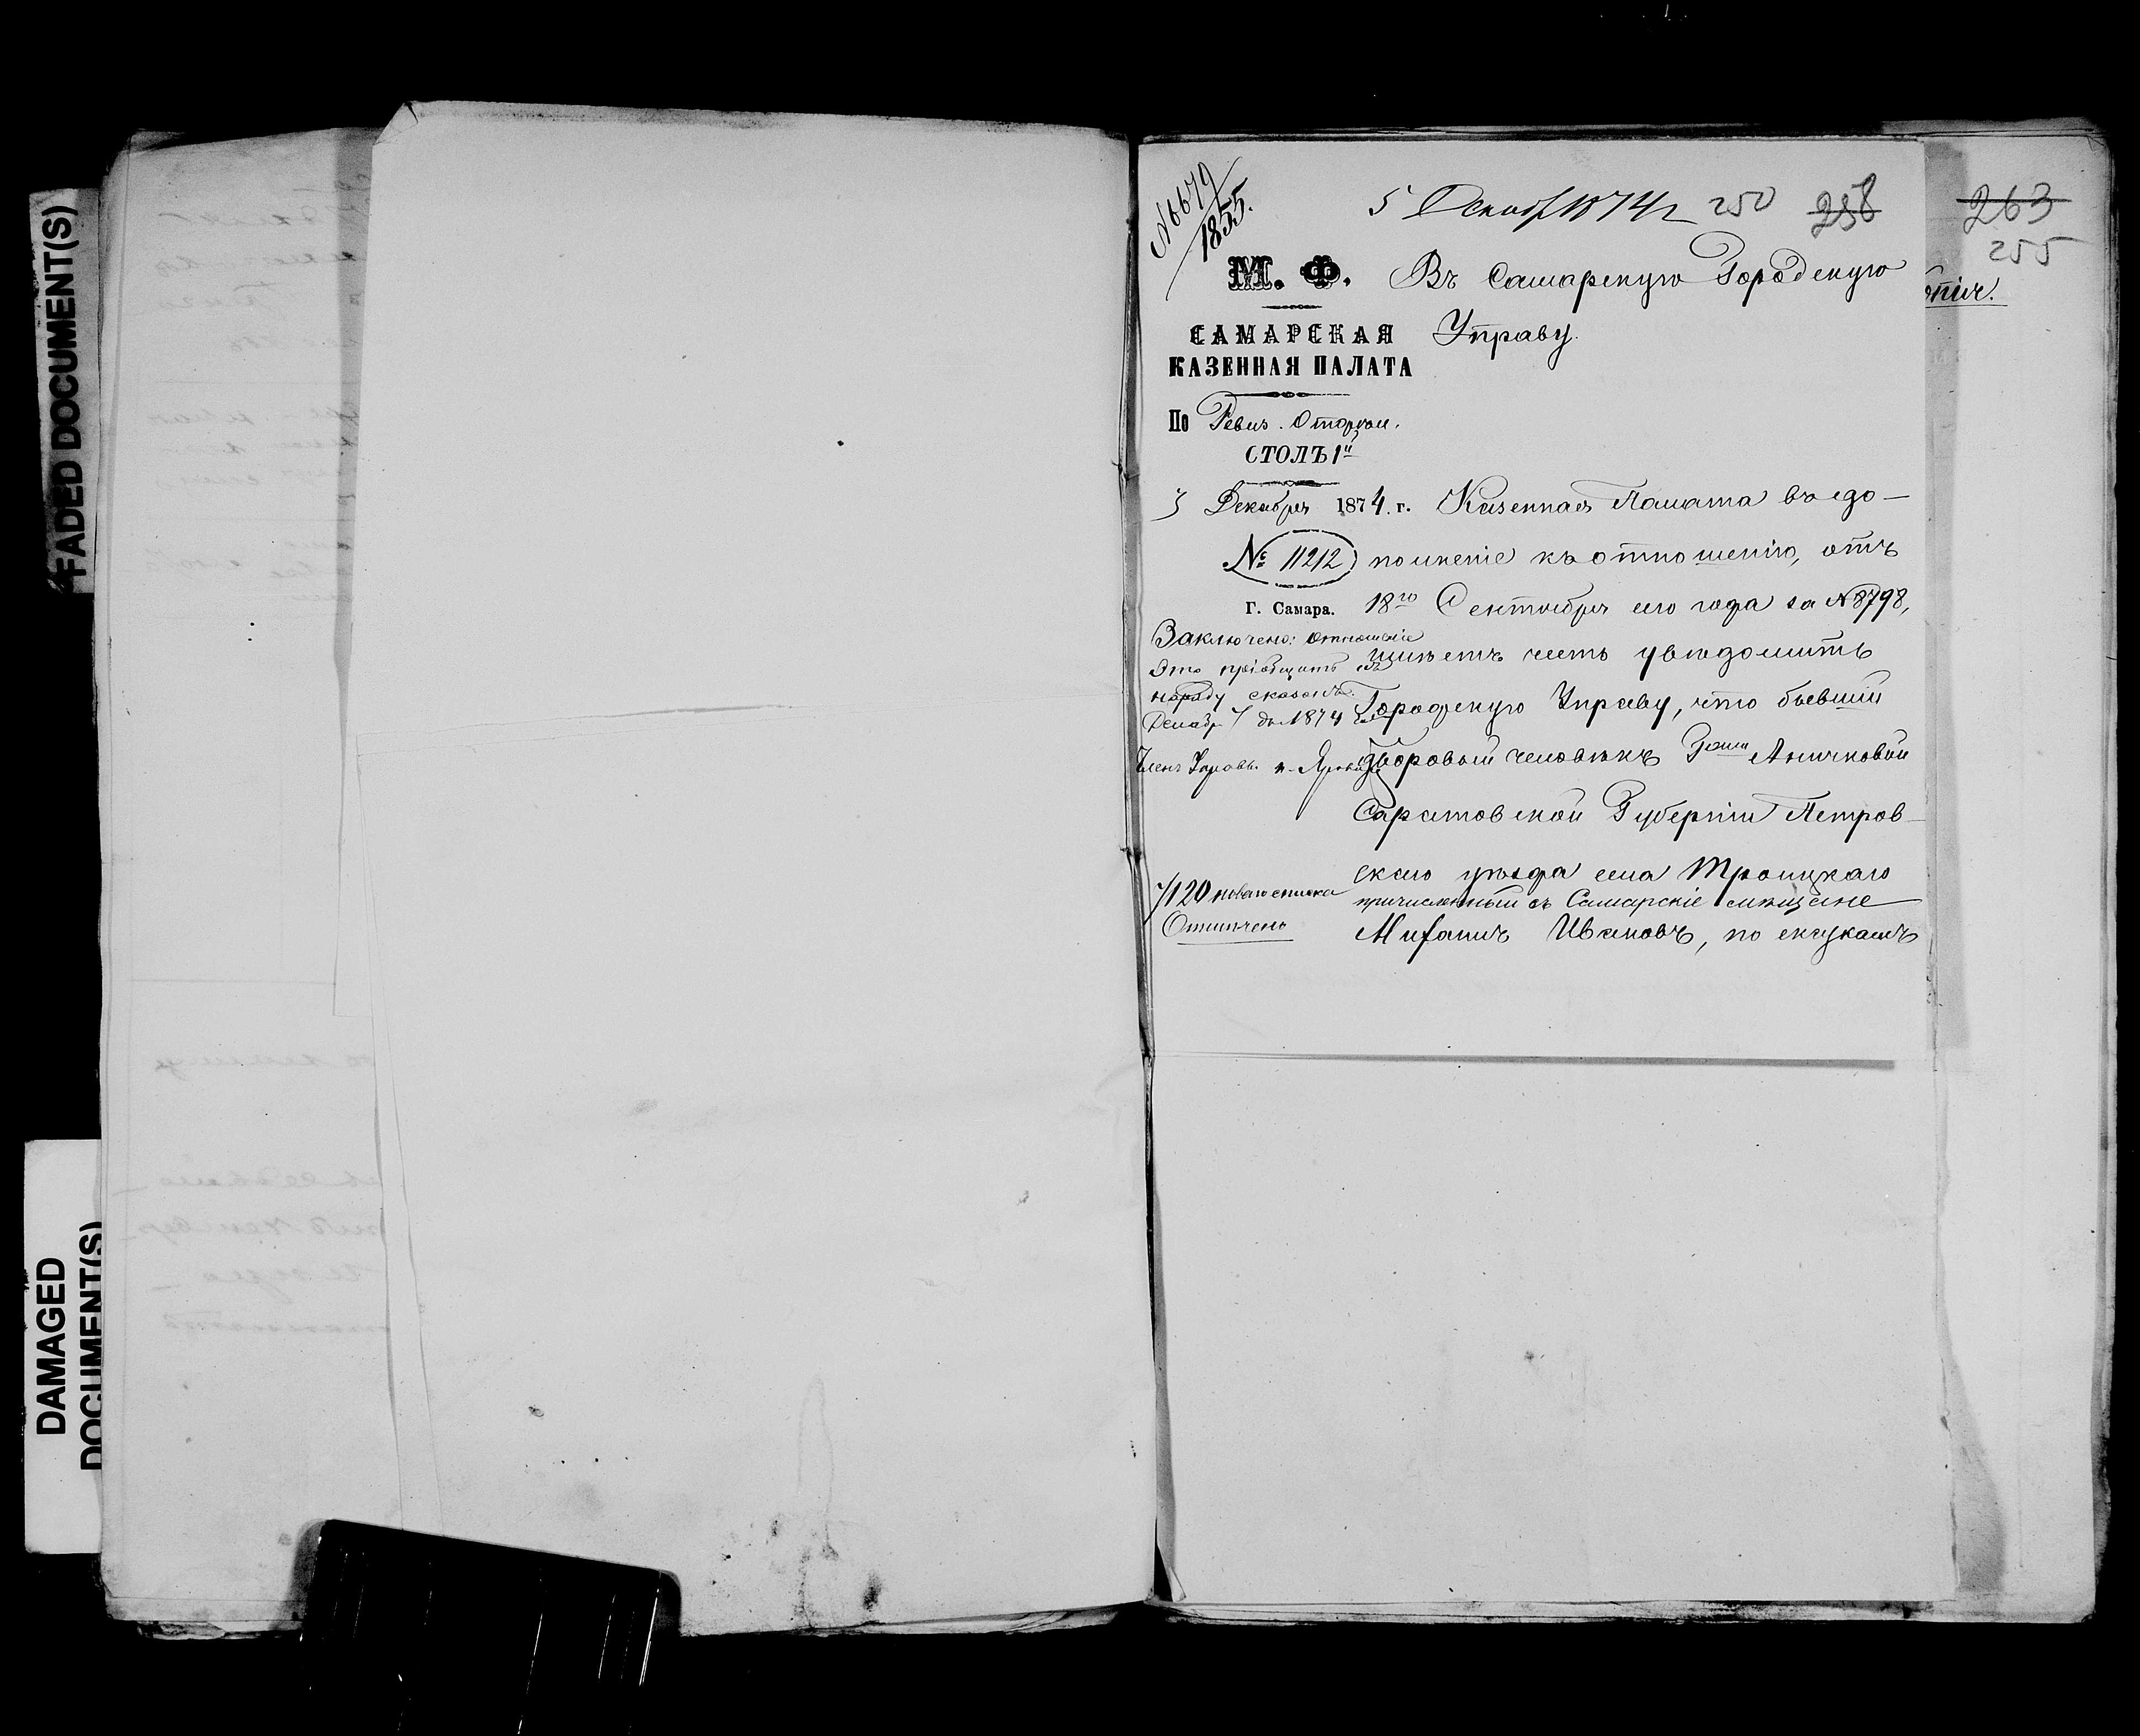 FADED DOCUMENT(S)
DAMAGED
DOCUMENT(S)
№6679
1855.
5 Декабр 1874 г 250 258
263
255
М. Ф.
САМАРСКАЯ
КАЗЕННАЯ ПАЛАТА
По Ревиз. Отдѣлен.
СТОЛЪ 1й
3 Декабря 1874. г.
№ 11212
Г. Самара.
Въ Самарскую Городскую
Управу.
Казенная Палата въ до-
полненіе къ отношенію, отъ
18го Сентября сего года за №8798,
имѣетъ честь увѣдомить
Городскую Управу, что бывшій
дворовый человѣкъ Гжи Аничковой
Саратовской Губерніи Петров-
скаго уѣзда села Троицкаго
причисленный въ Самарскіе мѣщане
Иванов, по сказкамъ
Заключено: отношеніе
это пріобщить къ
наряду сказокъ.
Декабр 7 дн 1874
Членъ Управы
7/120 новаго списка
Отмѣчено